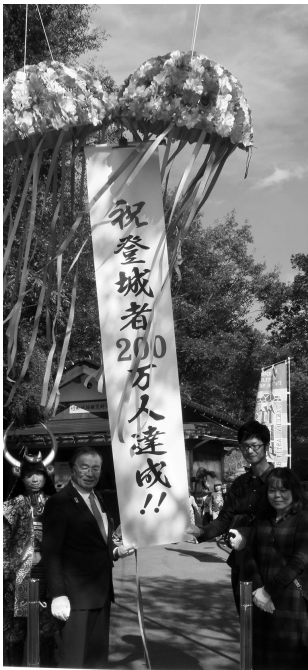 祝登城者200万人達成!!